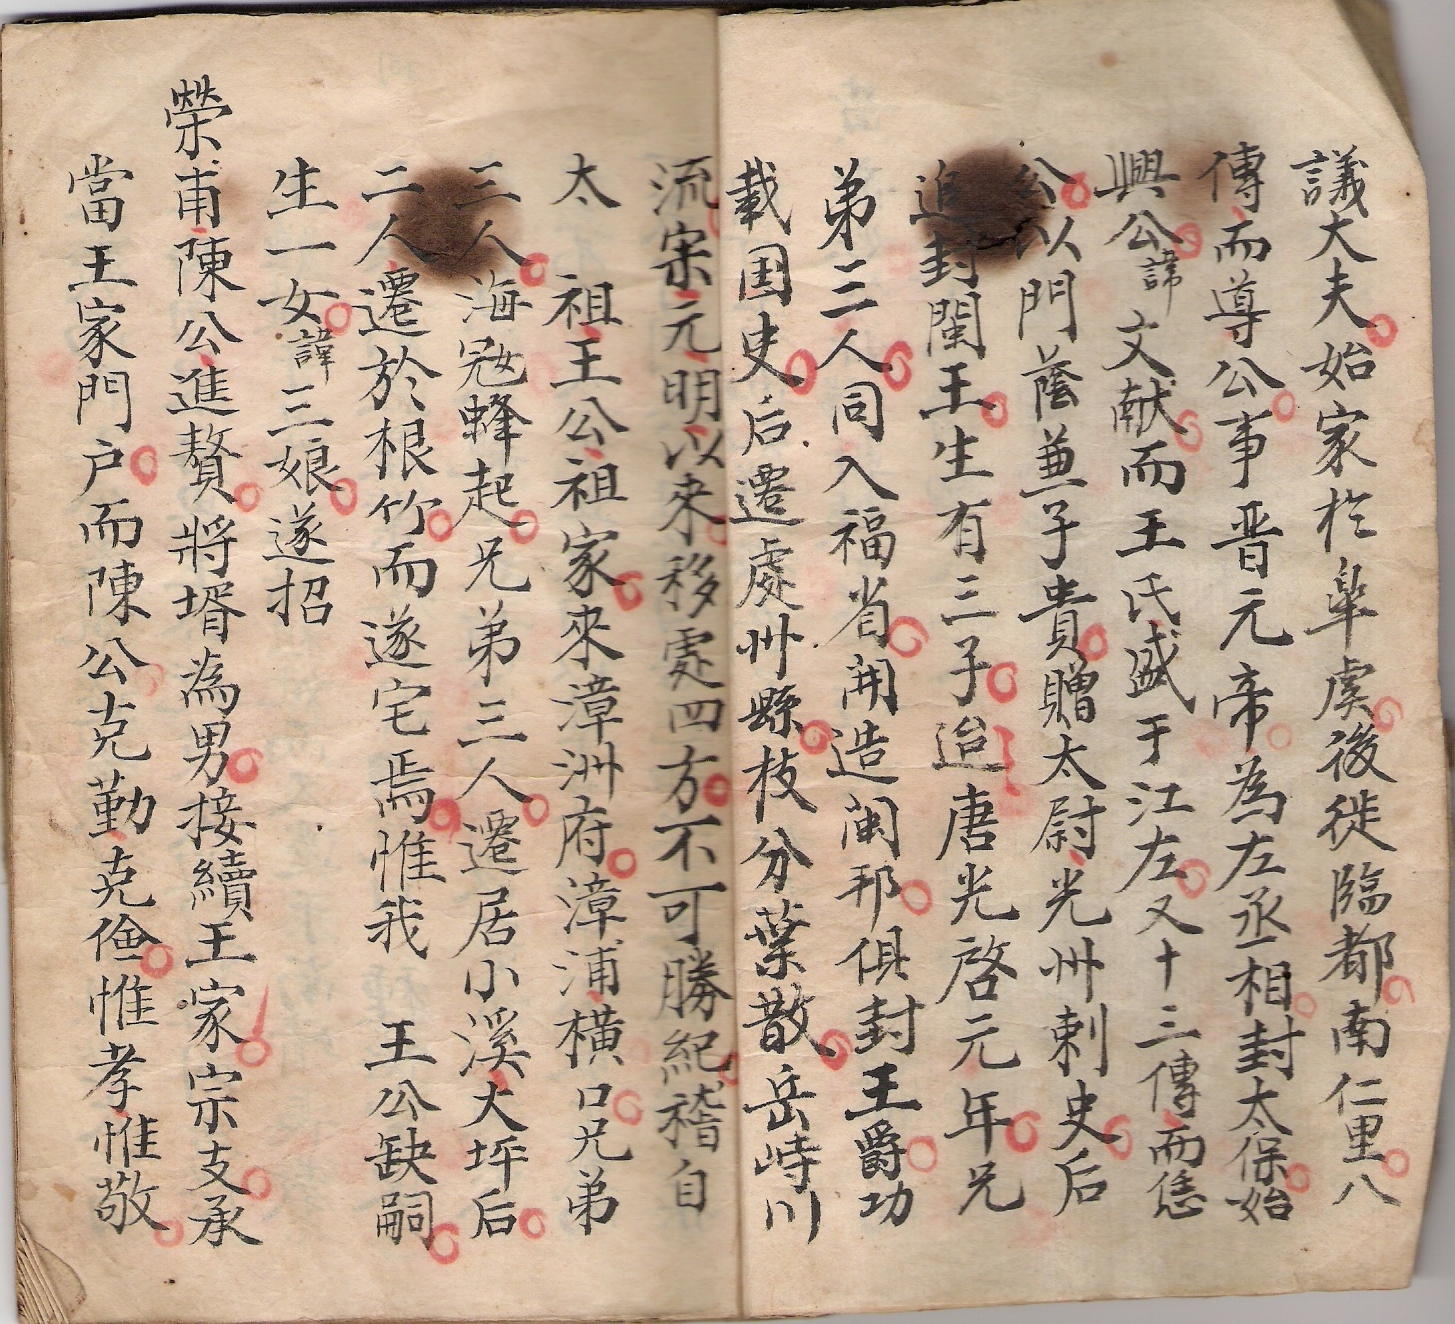 議大夫始家於皐虞後徙臨都南仁里八
傳而導公事晋元帝為左丞相封太保始
興公諱文献而王氏盛于江左又十三傳而恁
公以門蔭兼子貴贈太尉光州剌史后
追封閩王生有三子迨唐光啓元年兄
弟三人同入福省開造闽邦俱封王爵功
載国史后遷處州縣枝分葉散岳峙川
流宋元明以來移處四方不可勝紀稽自
太祖王公祖家來漳洲府漳浦横口兄弟
三人海冦蜂起兄弟三人遷居小溪大坪后
二人遷於根竹而遂宅焉惟我王公缺嗣
生一女諱三娘遂招
榮甫陳公進贅將壻為男接續王家宗支承
當王家門户而陳公克勤克儉惟孝惟敬